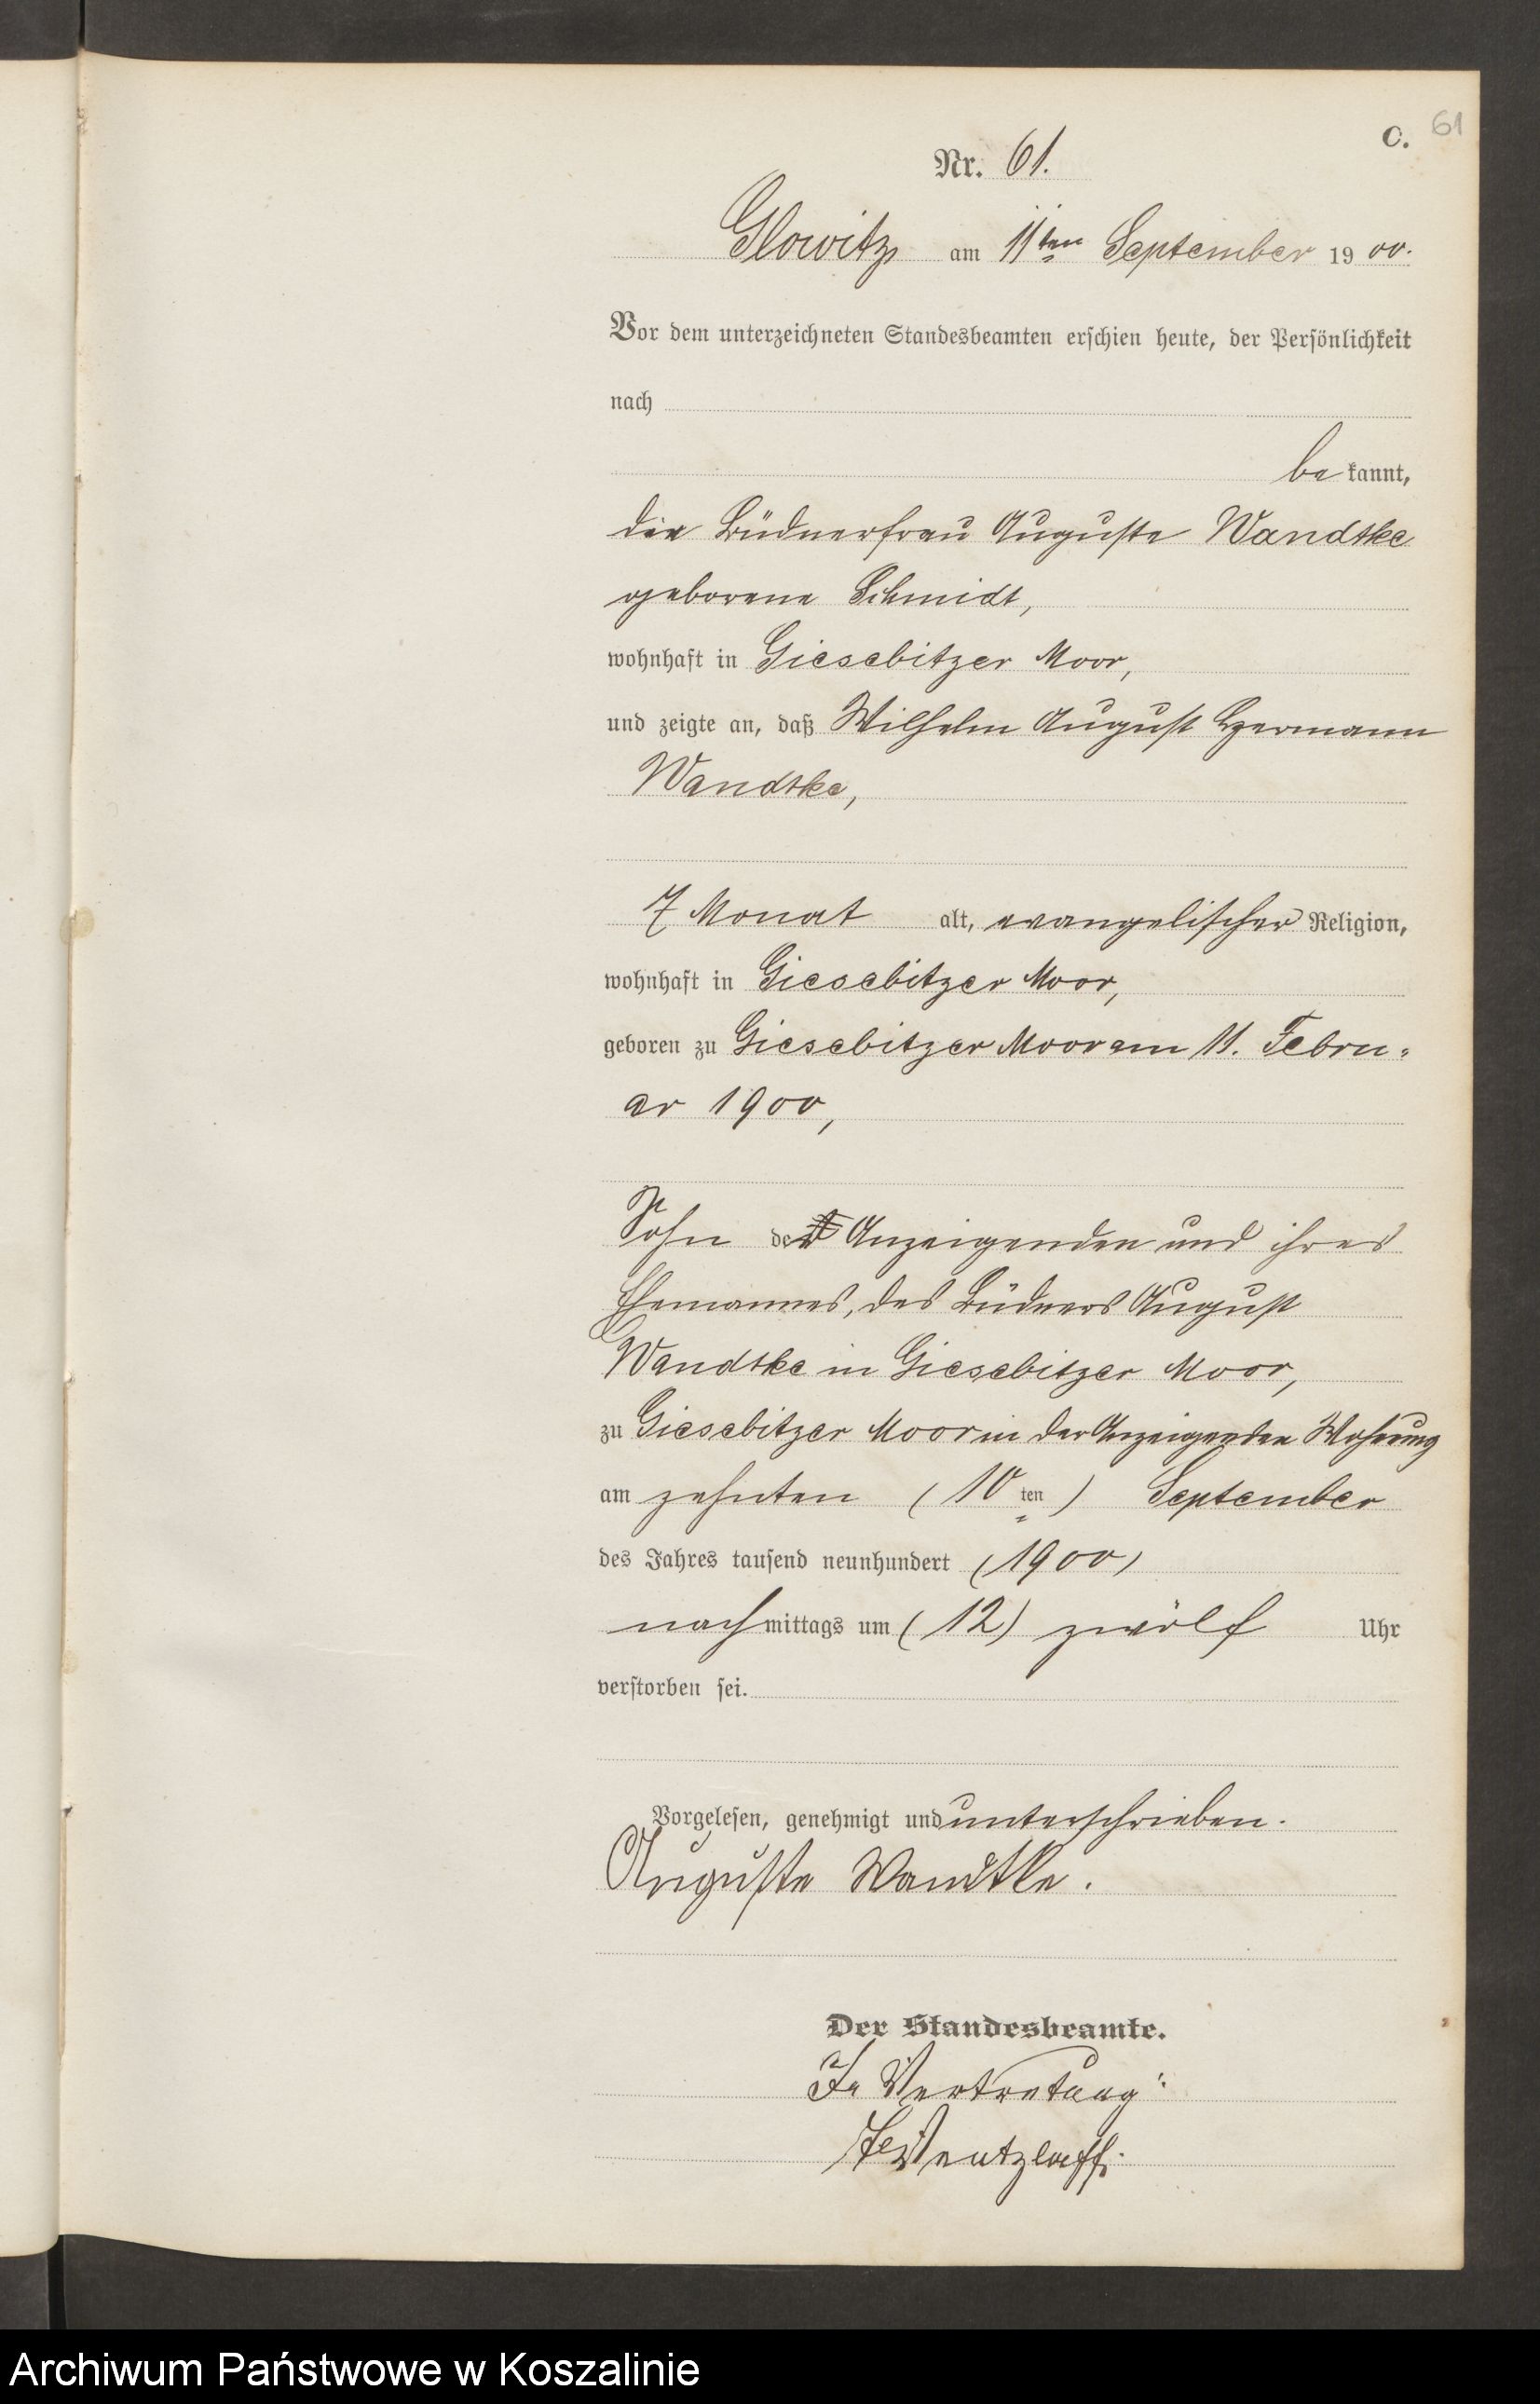 C. 61
Nr. 61.
Glowitz am 11ten September 1900.
Vor dem unterzeichneten Standesbeamten erschien heute, der Persönlichkeit
nach
be kannt,
die Büdnerfrau Auguste Wandtke
geborene Schmidt,
wohnhaft in Giesebitzer Moor,
und zeigte an, daß Wilhelm August Hermann
Wandtke,
7 Monat alt, evangelischer Religion,
wohnhaft in Giesebitzer Moor,
geboren zu Giesebitzer Moor am 11. Febru-
ar 1900,
Sohn der Anzeigenden und ihres
Ehemannes, des Büdners August
Wandtke in Giesebitzer Moor,
zu Giesebitzer Moor in der Anzeigenden Wohnung
am zehnten (10 ten) September
des Jahres tausend neunhundert (1900)
nachmittags um (12) zwölf Uhr
verstorben sei.
Vorgelesen, genehmigt und unterschrieben.
Auguste Wandtke.
Der Standesbeamte.
In Vertretung:
Wentzlaff.
Archiwum Państwowe w Koszalinie